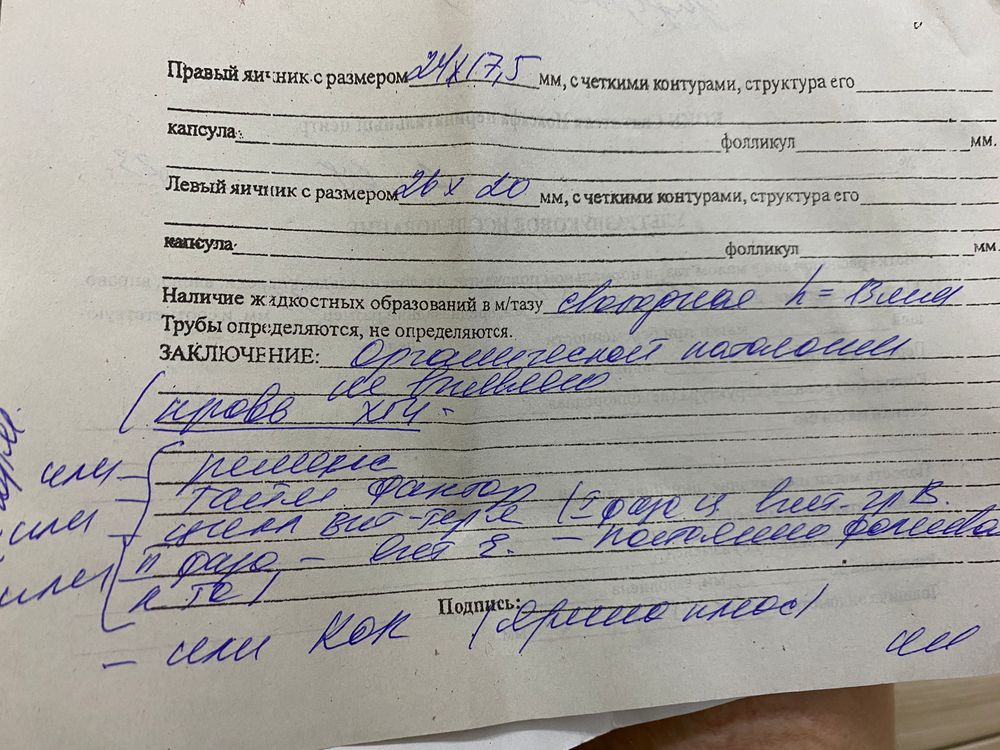 Правый яичник с размером 24х17,5 мм, с четкими контурами, структура его
капсула фолликул мм.
Левый яичник с размером 26 х 20 мм, с четкими контурами, структура его
капсула фолликул мм.
Наличие жидкостных образований в м/тазу свободная h = 13 мм
Трубы определяются, не определяются.
ЗАКЛЮЧЕНИЕ: Органической патологии
не выявлено
(кровь ХГЧ -
или ременс
или тайм фактор
цикл. вит-теря (I фаза ц вит. гр В.
или II фаза – вит Е. – постоянно фолиевая
к та)
Подпись:
– или КОК (Ярина плюс)
или